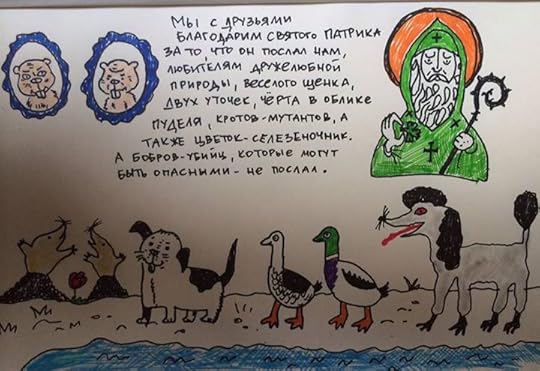 Мы с друзьями
благодарим святого Патрика
за то, что он послал нам,
любителям дружелюбной
природы, веселого щенка,
двух уточек, чёрта в облике
пуделя, кротов-мутантов, а
также цветок-селезеночник.
А бобров-убийц, которые могут
быть опасными - не послал.